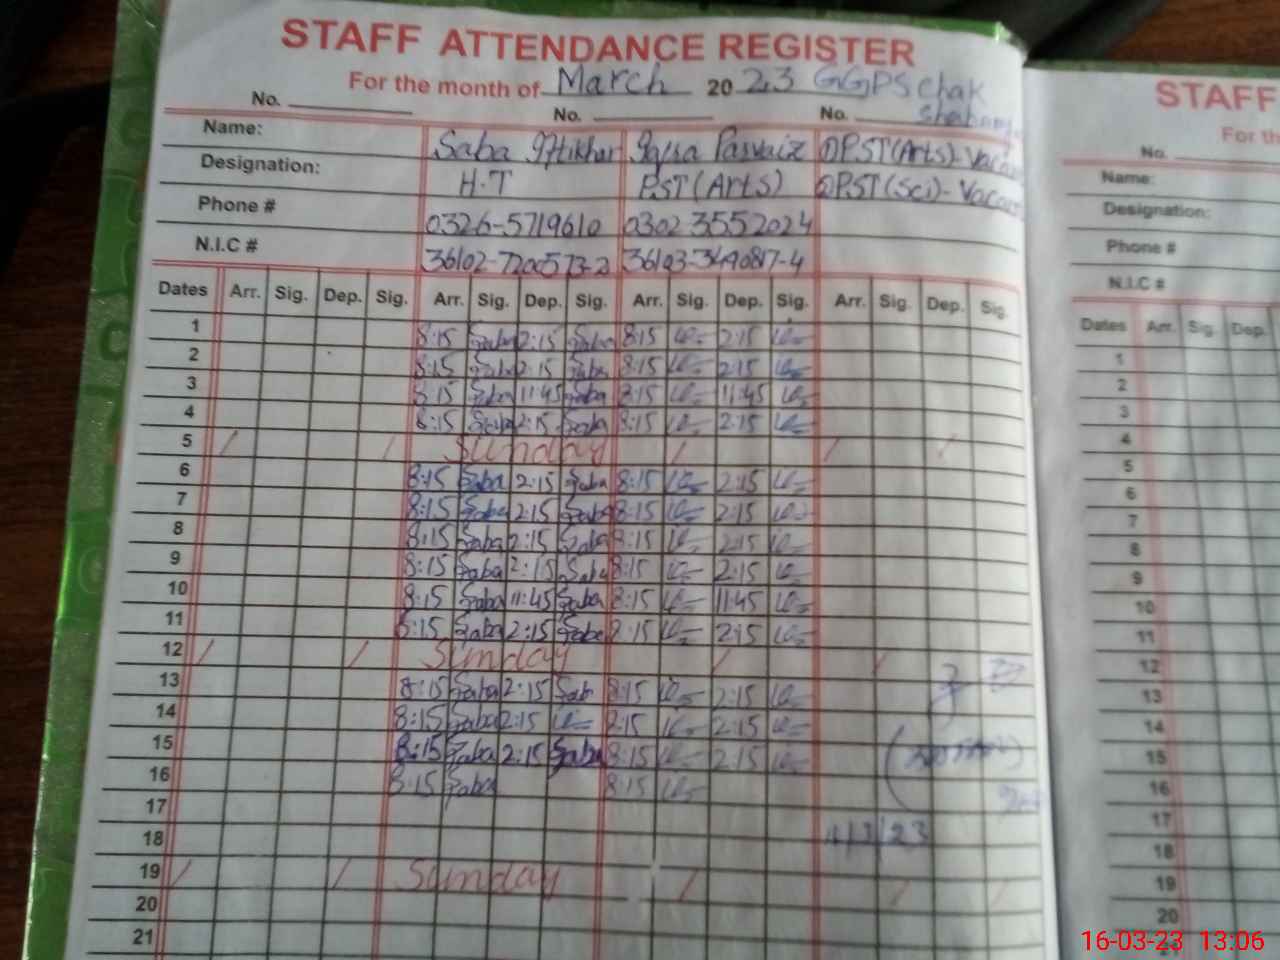 STAFF ATTENDANCE REGISTER
For the month of March 2023 GGPS chak
No. No. No.
Name: Saba Iftikhar Iqra Parvaiz ① PST(Arts)-
Designation: H.T PST(Arts) ② PST(Sci)-
Phone # 0326-5719610 0302 3552024
N.I.C #
Dates Arr. Sig. Dep. Sig. Arr. Sig. Dep. Sig. Arr. Sig. Dep. Sig. Arr. Sig. Dep. Sig.
1 8:15 Saba 2:15 Saba 8:15 2:15
2 8:15 Saba 2:15 Saba 8:15 2:15
3 8:15 Saba 11:45 Saba 8:15 11:45
4 8:15 Saba 2:15 Saba 8:15 2:15
5 Sunday
6 8:15 Saba 2:15 Saba 8:15 2:15
7 8:15 Saba 2:15 Saba 8:15 2:15
8 8:15 Saba 2:15 Saba 8:15 2:15
9 8:15 Saba 2:15 Saba 8:15 2:15
10 8:15 Saba 11:45 Saba 8:15 11:45
11 8:15 Saba 2:15 Saba 2:15 2:15
12 Sunday
13 8:15 Saba 2:15 Sab 8:15 2:15
14 8:15 Saba 2:15 2:15 2:15
15 8:15 Saba 2:15 Saba 8:15 2:15
16 8:15 Saba 8:15
17
18
19 Sunday
20
21
STAFF
For th
No.
Name:
Designation:
Phone #
N.I.C #
Dates Arr. Sig. Dep.
1
2
3
4
5
6
7
8
9
10
11
12
13
14
15
16
17
18
19
20
16-03-23 13:06